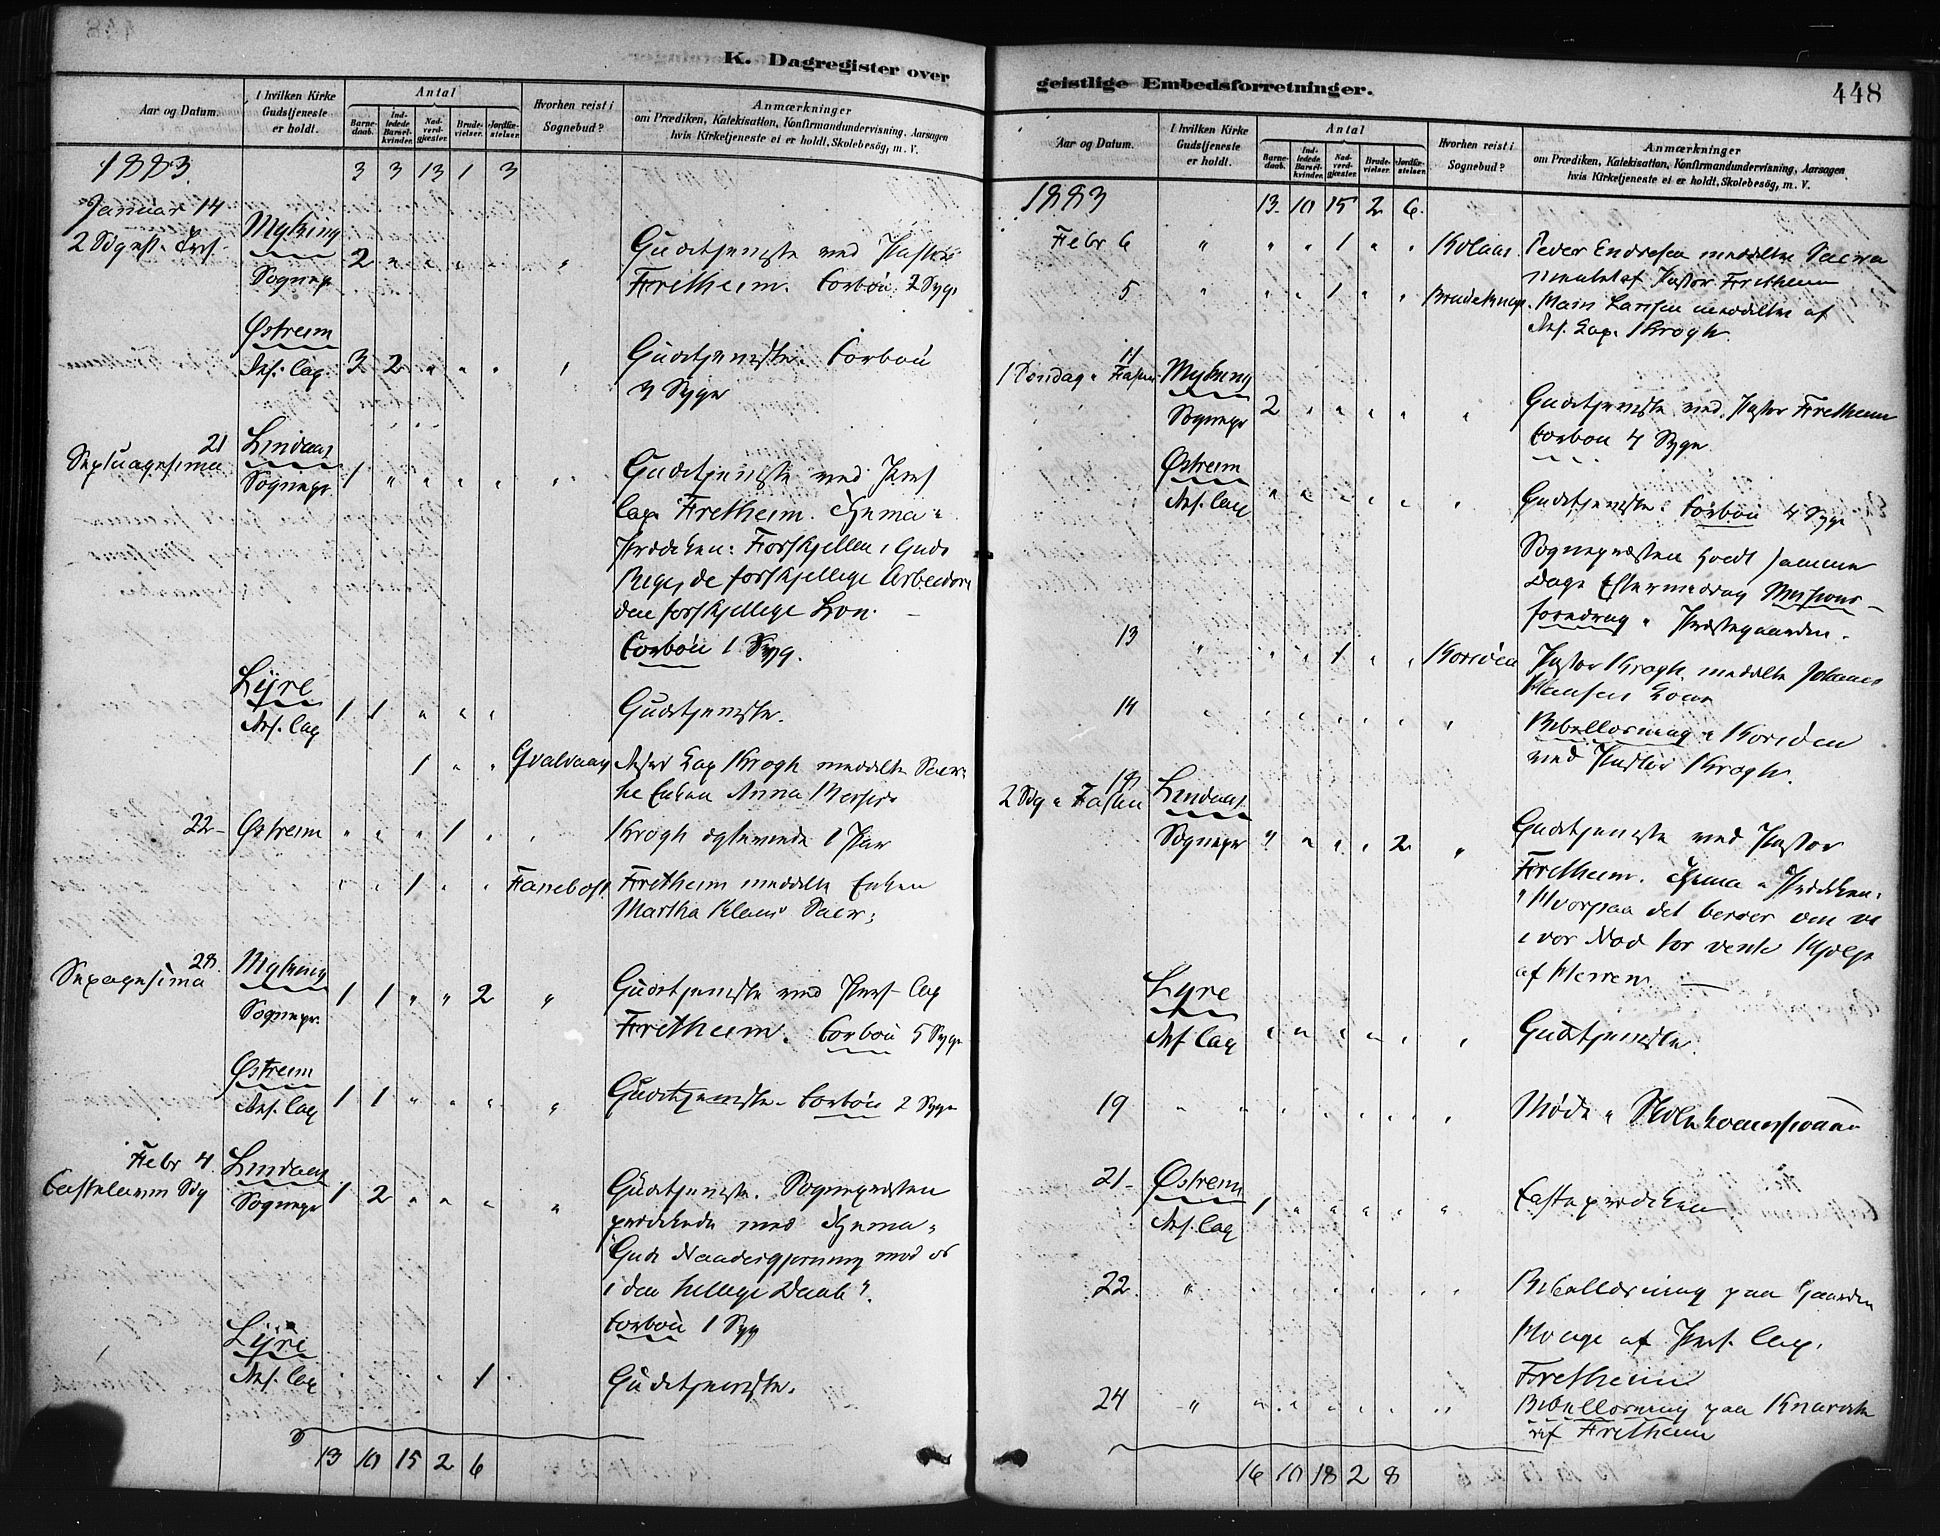 448
K. Dagregister over
Aar og Datum.
I hvilken Kirke Gudstjeneste er holdt.
Antal
Barnedaab.
Indledede Barselkvinder.
Nadverdgjester.
Brudevielser.
Jordfæstelser.
Hvorhen reist i Sognebud?
Anmærkninger
om Prædiken, Katekisation, Konfirmandundervisning, Aarsagen
hvis Kirketjeneste ei er holdt, Skolebesøg, m. V.
1883. 3 3 13 1 3
Januar 14 Myking
2 Sdg Sognepr 2 " " " " " Gudstjeneste ved Pastor
Fretheim. Forbøn 2 Syge
Østreim
Res. Cap. 3 2 " " " " Gudstjeneste. Forbøn
3 Syge
21 Lindaas
Septuagesima Sognepr 1 " " " " " Gudstjeneste ved Pers
Cap. Fretheim. Thema i
Prædiken: Forskjellen i Guds
Rige, de forskjellige Arbeidere
den forskjellige Løn.
Forbøn 1 Syg.
Lyre
Res. Cap 1 1 " " " Gudstjeneste.
1 " " Gvalvaag Resid Cap Krogh meddelte Sacr.
Enken Anna
22 Østreim " " " 1 " " Krogh egteviede 1 Par
" " 1 " " Fanebost Fretheim meddelte Enken
Martha Sacr.
28 Myking
Sexagesima Sognepr. 1 1 " " 2 " Gudstjeneste ved Pers Cap
Fretheim. Forbøn 5 Syge
Østreim
Res. Cap 1 1 " " " " Gudstjeneste. Forbøn 2 Syge
Febr 4. Lindaas
Fastelavn Sdg Sognepr 1 2 " " " " Gudstjeneste. Sognepresten
prædikede med Thema
"Guds Naadesgjerning mod os
i den hellige Daab".
Forbøn 1 Syg
Lyre
Res. Cap " 1 " Gudstjeneste.
13 10 15 2 6
geistlige Embedsforretninger.
448
Aar og Datum.
I hvilken Kirke Gudstjeneste er holdt.
Antal
Barnedaab.
Indledede Barselkvinder.
Nadverdgjester.
Brudevielser.
Jordfæstelser.
Hvorhen reist i Sognebud?
Anmærkninger
om Prædiken, Katekisation, Konfirmandundervisning, Aarsagen
hvis Kirketjeneste ei er holdt, Skolebesøg, m. V.
1883 13. 10 15 2 6.
Febr 6 " " " 1 " " Kolaas Peder Endresen meddeltes Sacra
mentet af Pastor Fretheim
5 " " " 1 " " Brudeknap. Larsen meddeltes af
Res. Cap. Krogh.
11
1 Søndag i Fasten Myking
Sognepr 2 " " " " " Gudstjeneste ved Pastor Fretheim
Forbøn 4 Syge
Østreim
Res. Cap " " " " " " Gudstjeneste. Forbøn 4 Syge
Sognepræsten holdt samme
Dags Eftermiddag Missions-
foredrag i Præstegaarden.
13 " " " 1 " " Korsöen Pastor Krogh meddelte Johannes
Hansen
14 " " " " " " " Bibellæsning i Korsöen
ved Pastor Krogh.
18
2 Sdg i Fasten Lindaas
Sognepr " " " " 2 " Gudstjeneste ved Pastor
Fretheim. Thema i Prædiken:
"Hvorpaa det beroer om vi
i vor Nød tør vente Hjælp
af Herren" —
Lyre
Res Cap " " " " " " Gudstjeneste.
19 " " " " " " " Møde i Skolekommissionen
21. Østreim
Res. Cap 1 " " " " " Fasteprædiken
22. " " " " " " " Bibellæsning paa Gaarden
Hauge af Pers. Cap.
Fretheim
24 " " " " " " " Bibellæsning paa Knarvik
ved Fretheim
16 10 18 2 8